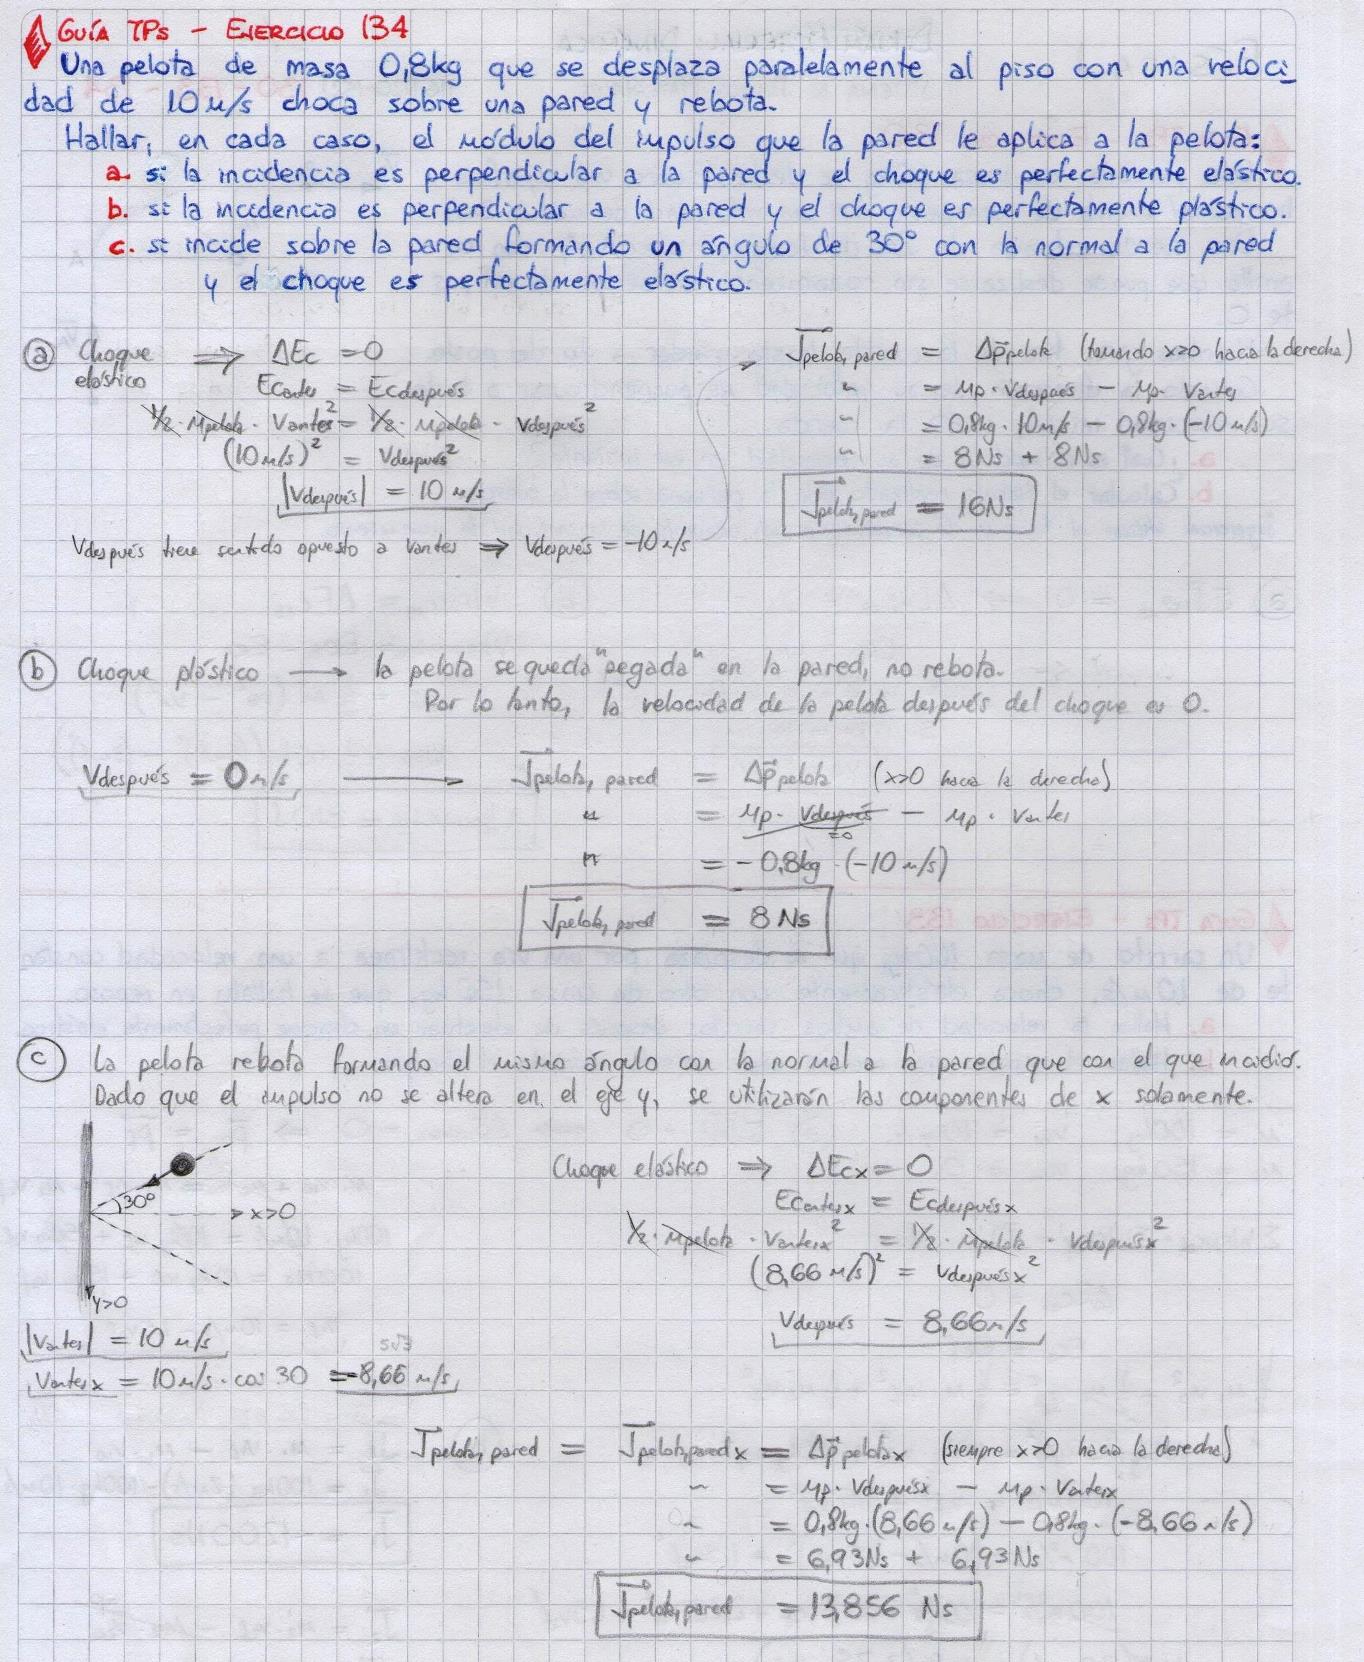 GUÍA TPs - EJERCICIO 134
Una pelota de masa 0,8kg que se desplaza paralelamente al piso con una veloci
dad de 10 m/s choca sobre una pared y rebota.
Hallar, en cada caso, el módulo del impulso que la pared le aplica a la pelota:
a. si la incidencia es perpendicular a la pared y el choque es perfectamente elástico.
b. si la incidencia es perpendicular a la pared y el choque es perfectamente plástico.
c. si incide sobre la pared formando un ángulo de 30° con la normal a la pared
y el choque es perfectamente elástico.
a Choque elástico ⇒ ΔEc = 0
Ecantes = Ecdespués
1/2 · mpelota · Vantes² = 1/2 · mpelota · Vdespués²
(10 m/s)² = Vdespués²
|Vdespués| = 10 m/s
Vdespués tiene sentido opuesto a Vantes ⇒ Vdespués = -10 m/s
Jpelota, pared = Δp pelota (tomando x>0 hacia la derecha)
" = mp · Vdespués - mp · Vantes
" = 0,8kg · 10m/s - 0,8kg · (-10 m/s)
" = 8Ns + 8Ns
Jpelota, pared = 16Ns
b Choque plástico → la pelota se queda "pegada" en la pared, no rebota.
Por lo tanto, la velocidad de la pelota después del choque es 0.
Vdespués = 0 m/s → Jpelota, pared = Δp pelota (x>0 hacia la derecha)
" = mp · Vdespués =0 - mp · Vantes
" = - 0,8kg · (-10 m/s)
Jpelota, pared = 8 Ns
c La pelota rebota formando el mismo ángulo con la normal a la pared que con el que incidió.
Dado que el impulso no se altera en el eje y, se utilizarán las componentes de x solamente.
30°
x>0
y>0
|Vantes| = 10 m/s
5√3
Vantesx = 10 m/s · cos 30 = 8,66 m/s
Choque elástico ⇒ ΔEcx = 0
Ecantesx = Ecdespuésx
1/2 · mpelota · Vantesx² = 1/2 · mpelota · Vdespuésx²
(8,66 m/s)² = Vdespuésx²
Vdespués = 8,66 m/s
Jpelota, pared = Jpelota, pared x = Δp pelotax (siempre x>0 hacia la derecha)
" = mp · Vdespuésx - mp · Vantesx
" = 0,8kg · (8,66 m/s) - 0,8kg · (-8,66 m/s)
" = 6,93Ns + 6,93Ns
Jpelota, pared = 13,856 Ns